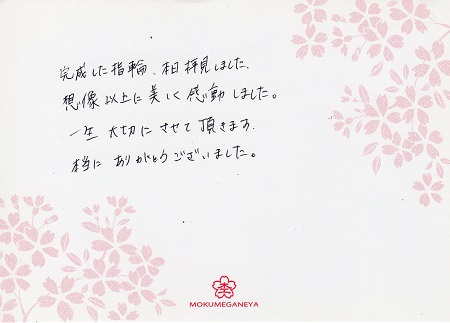 完成した指輪、本日拝見しました。
想像以上に美しく感動しました。
一生大切にさせて頂きます.
本当にありがとうございました。
MOKUMEGANEYA